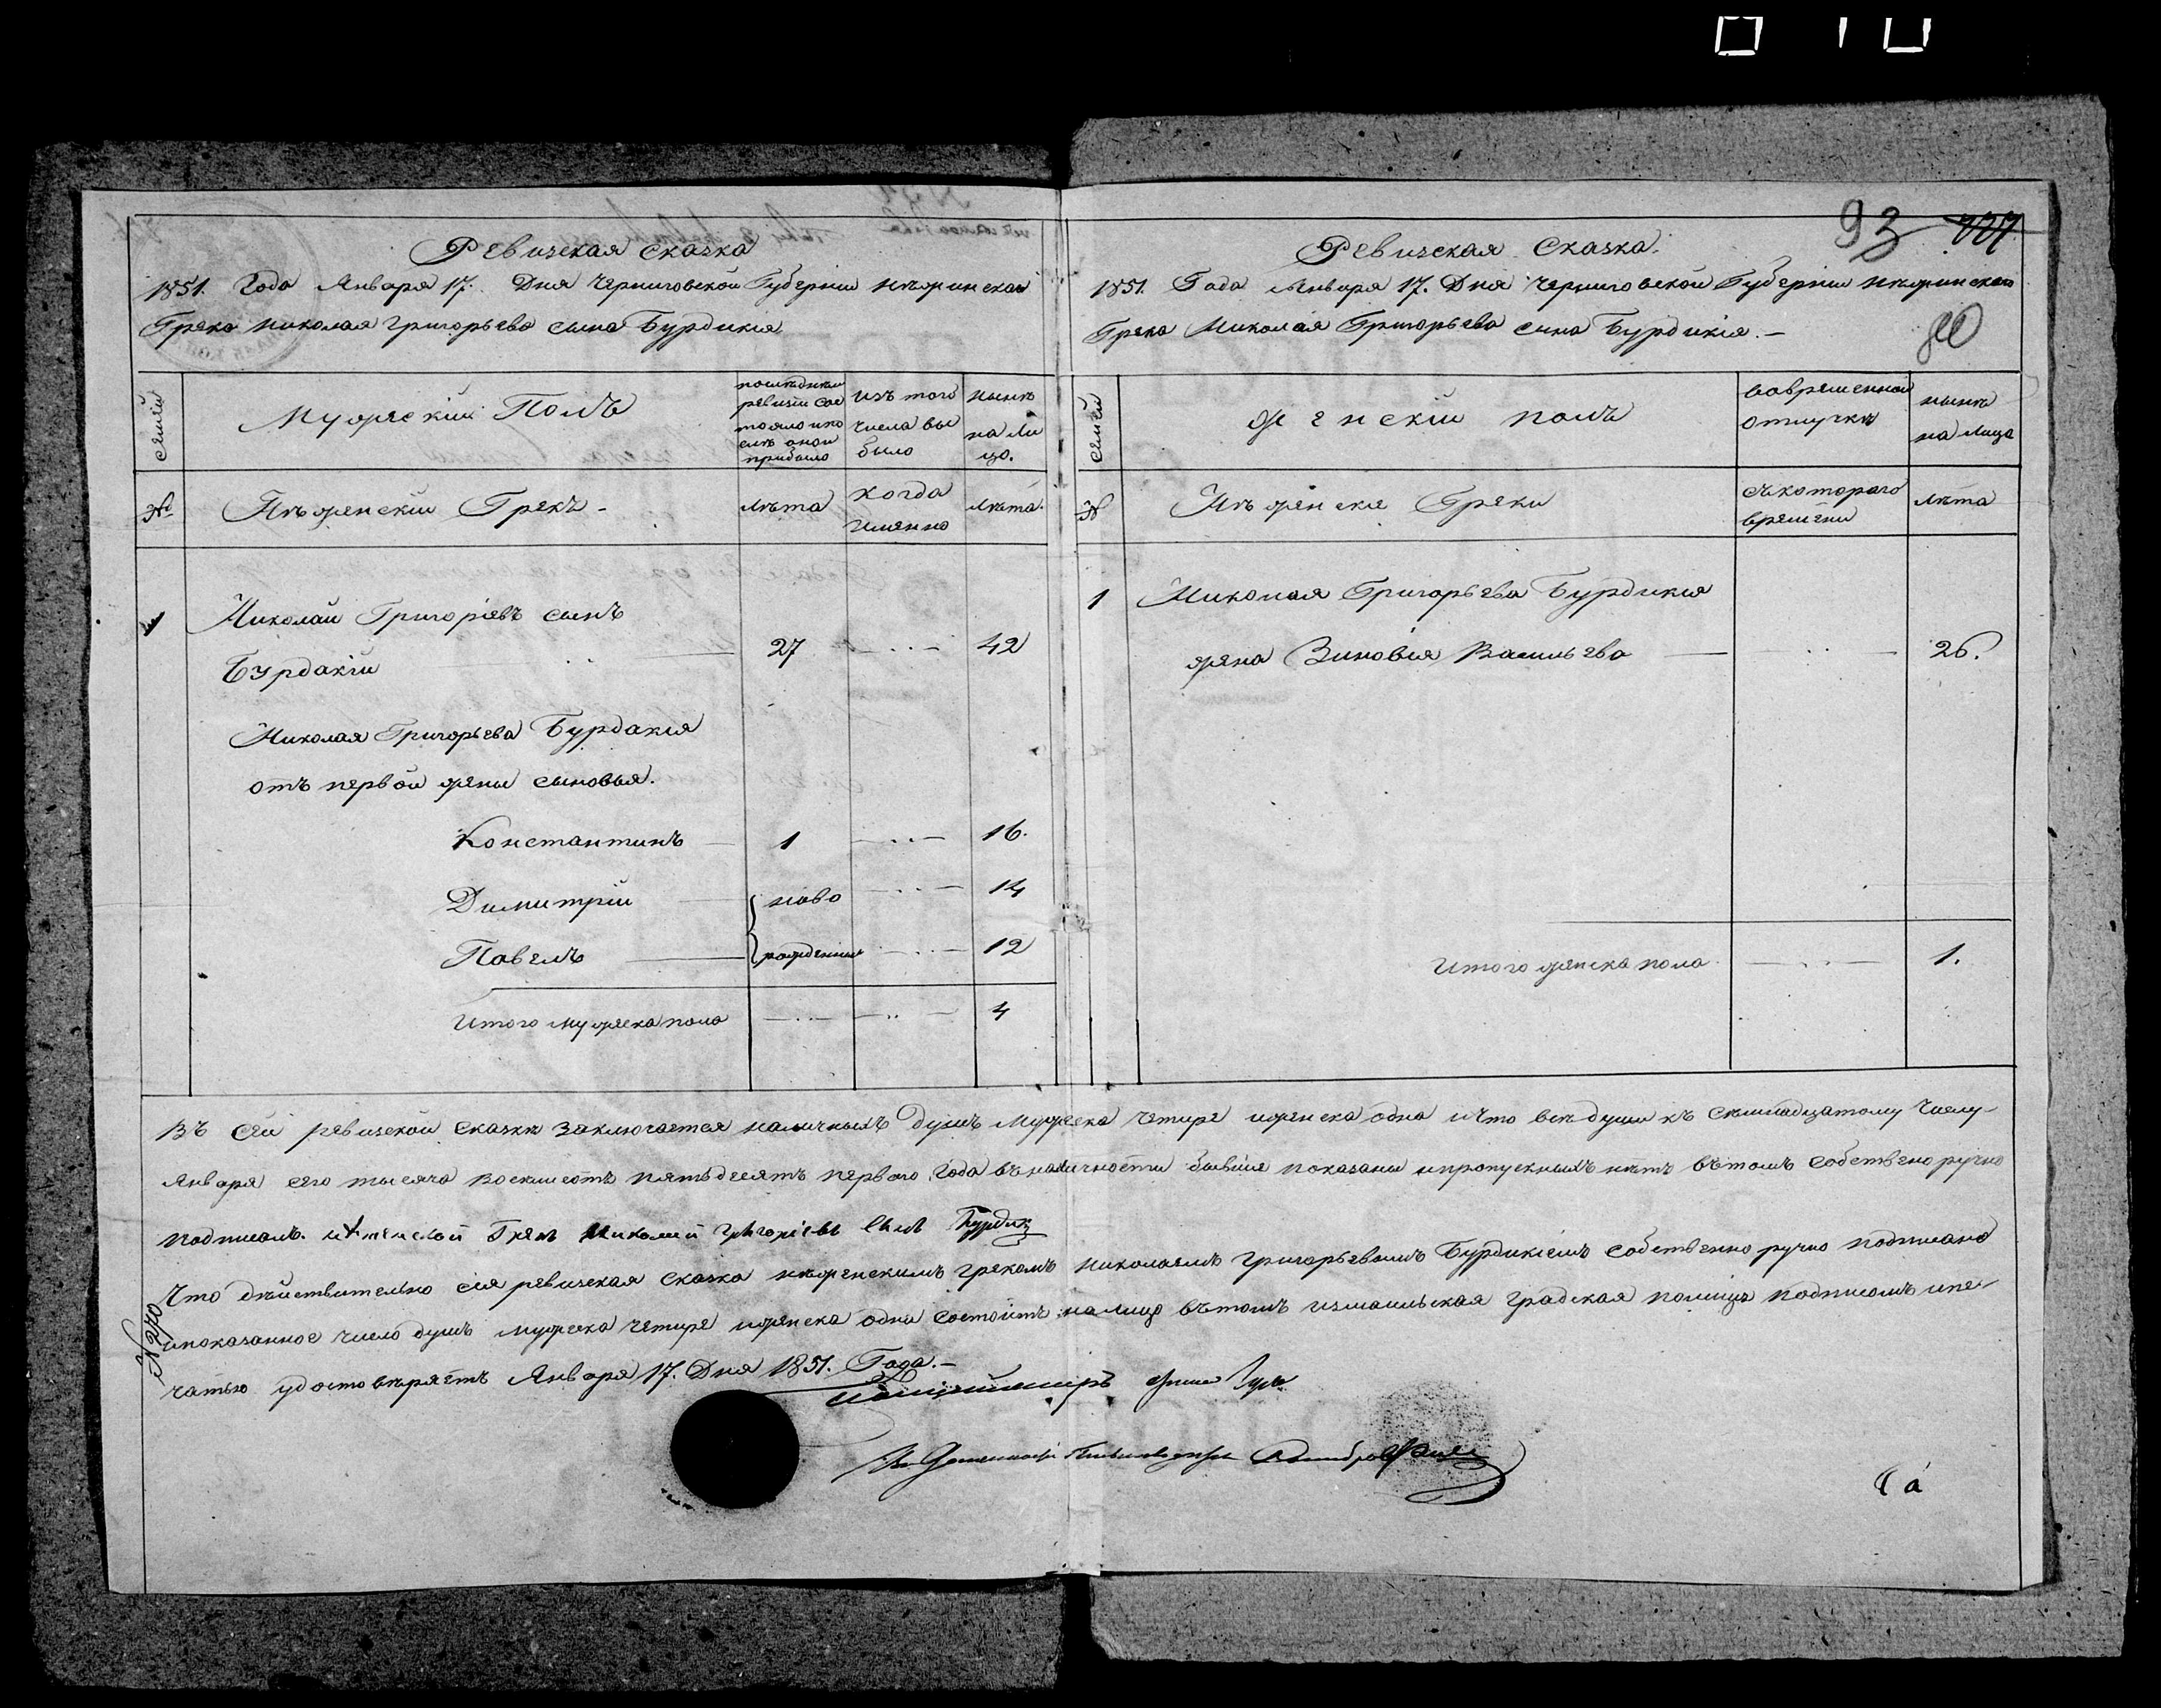 Ревизская сказка
1851. Года Января 17. Дня Черниговской Губернии Нѣжинскаго
Грека Николая Григорьева сына Бурдикия
Семьи
Мужескій Полъ
последнѣй ревизіи состояло и после оной прибыло
изъ того числа выбыло
нынѣ на лицо.
№
Нѣженскій Грекъ -
лѣта
когда именно
лѣта.
1
Николай Григоріевъ сынъ
Бурдакій
27
42
Николая Григорьева Бурдакія
отъ первой жены сыновья.
Константинъ
1
16.
Димитрій
ново
14
Павелъ
рожденны
12
Итого мужеска пола
4
93
727
Ревизская Сказка.
1851. Года Января 17. Дня Черниговской Губерніи Нѣжинскаго
Грека Николая Григорьева сина Бурдикія. -
Семьи
Женскій полъ
во временной отлучкѣ
нынѣ на лицо
№
Нѣженскіе Греки
съ котораго времени
лѣта
1
Николая Григорьева Бурдикія
жена Зиновія Васильева
26.
Итого женска пола
1.
Въ сей ревизской сказкѣ заключается наличныхъ душъ мужеска четире и женска одна и что все души къ семнадцатому числу
Января сего тысяча восемсотъ пятьдесятъ перваго года въ наличности бывшіе показаны и пропускныхъ нѣтъ въ томъ собственоручно
подписалъ. нѣженской Грекъ Николай Григоріевъ сынъ Бурдик
Что дѣйствительно сія ревизская сказка нѣженскимъ грекомъ Николаемъ Григорьевымъ Бурдикіемъ собственно ручно подписана
и показанное число душъ мужеска четире и женска одна состоитъ на лицо въ томъ измаильская градская полиція подписомъ и пе-
чатью удостовѣряетъ Января 17. Дня 1851. Года. -
№ 270
Полицiймейстеръ